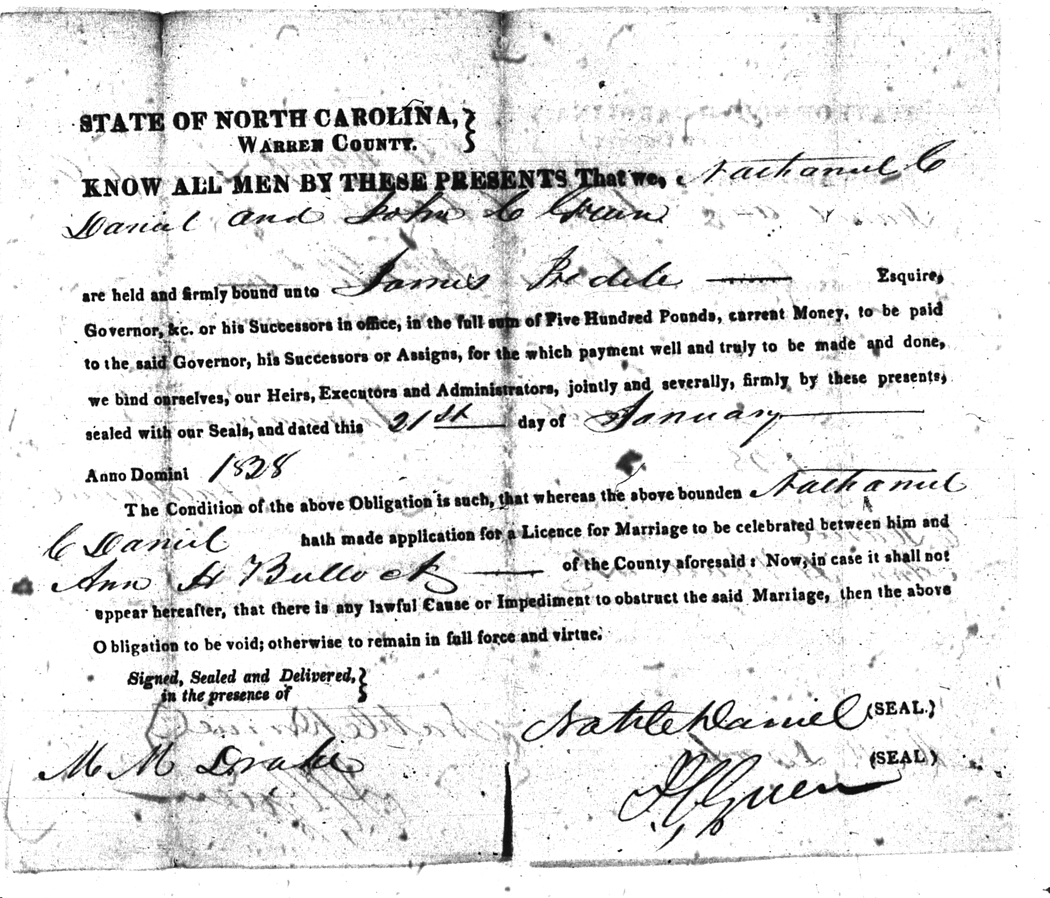 STATE OF NORTH CAROLINA,
WARREN COUNTY.
KNOW ALL MEN BY THESE PRESENTS That we, Nathaniel C
Daniel and John C Green
are held and firmly bound unto James Iredele Esquire,
Governor, &c. or his Successors in office, in the full sum of Five Hundred Pounds, current Money, to be paid
to the said Governor, his Successors or Assigns, for the which payment well and truly to be made and done,
we bind ourselves, our Heirs, Executors and Administrators, jointly and severally, firmly by these presents,
sealed with our Seals, and dated this 21st day of January
Anno Domini 1828
The Condition of the above Obligation is such, that whereas the above bounden Nathaniel
C Daniel hath made application for a Licence for Marriage to be celebrated between him and
Ann H Bullock of the County aforesaid: Now, in case it shall not
appear hereafter, that there is any lawful Cause or Impediment to obstruct the said Marriage, then the above
Obligation to be void; otherwise to remain in full force and virtue.
Signed, Sealed and Delivered,
in the presence of
Nathl C Daniel (SEAL.)
M M Drake
J C Green (SEAL)